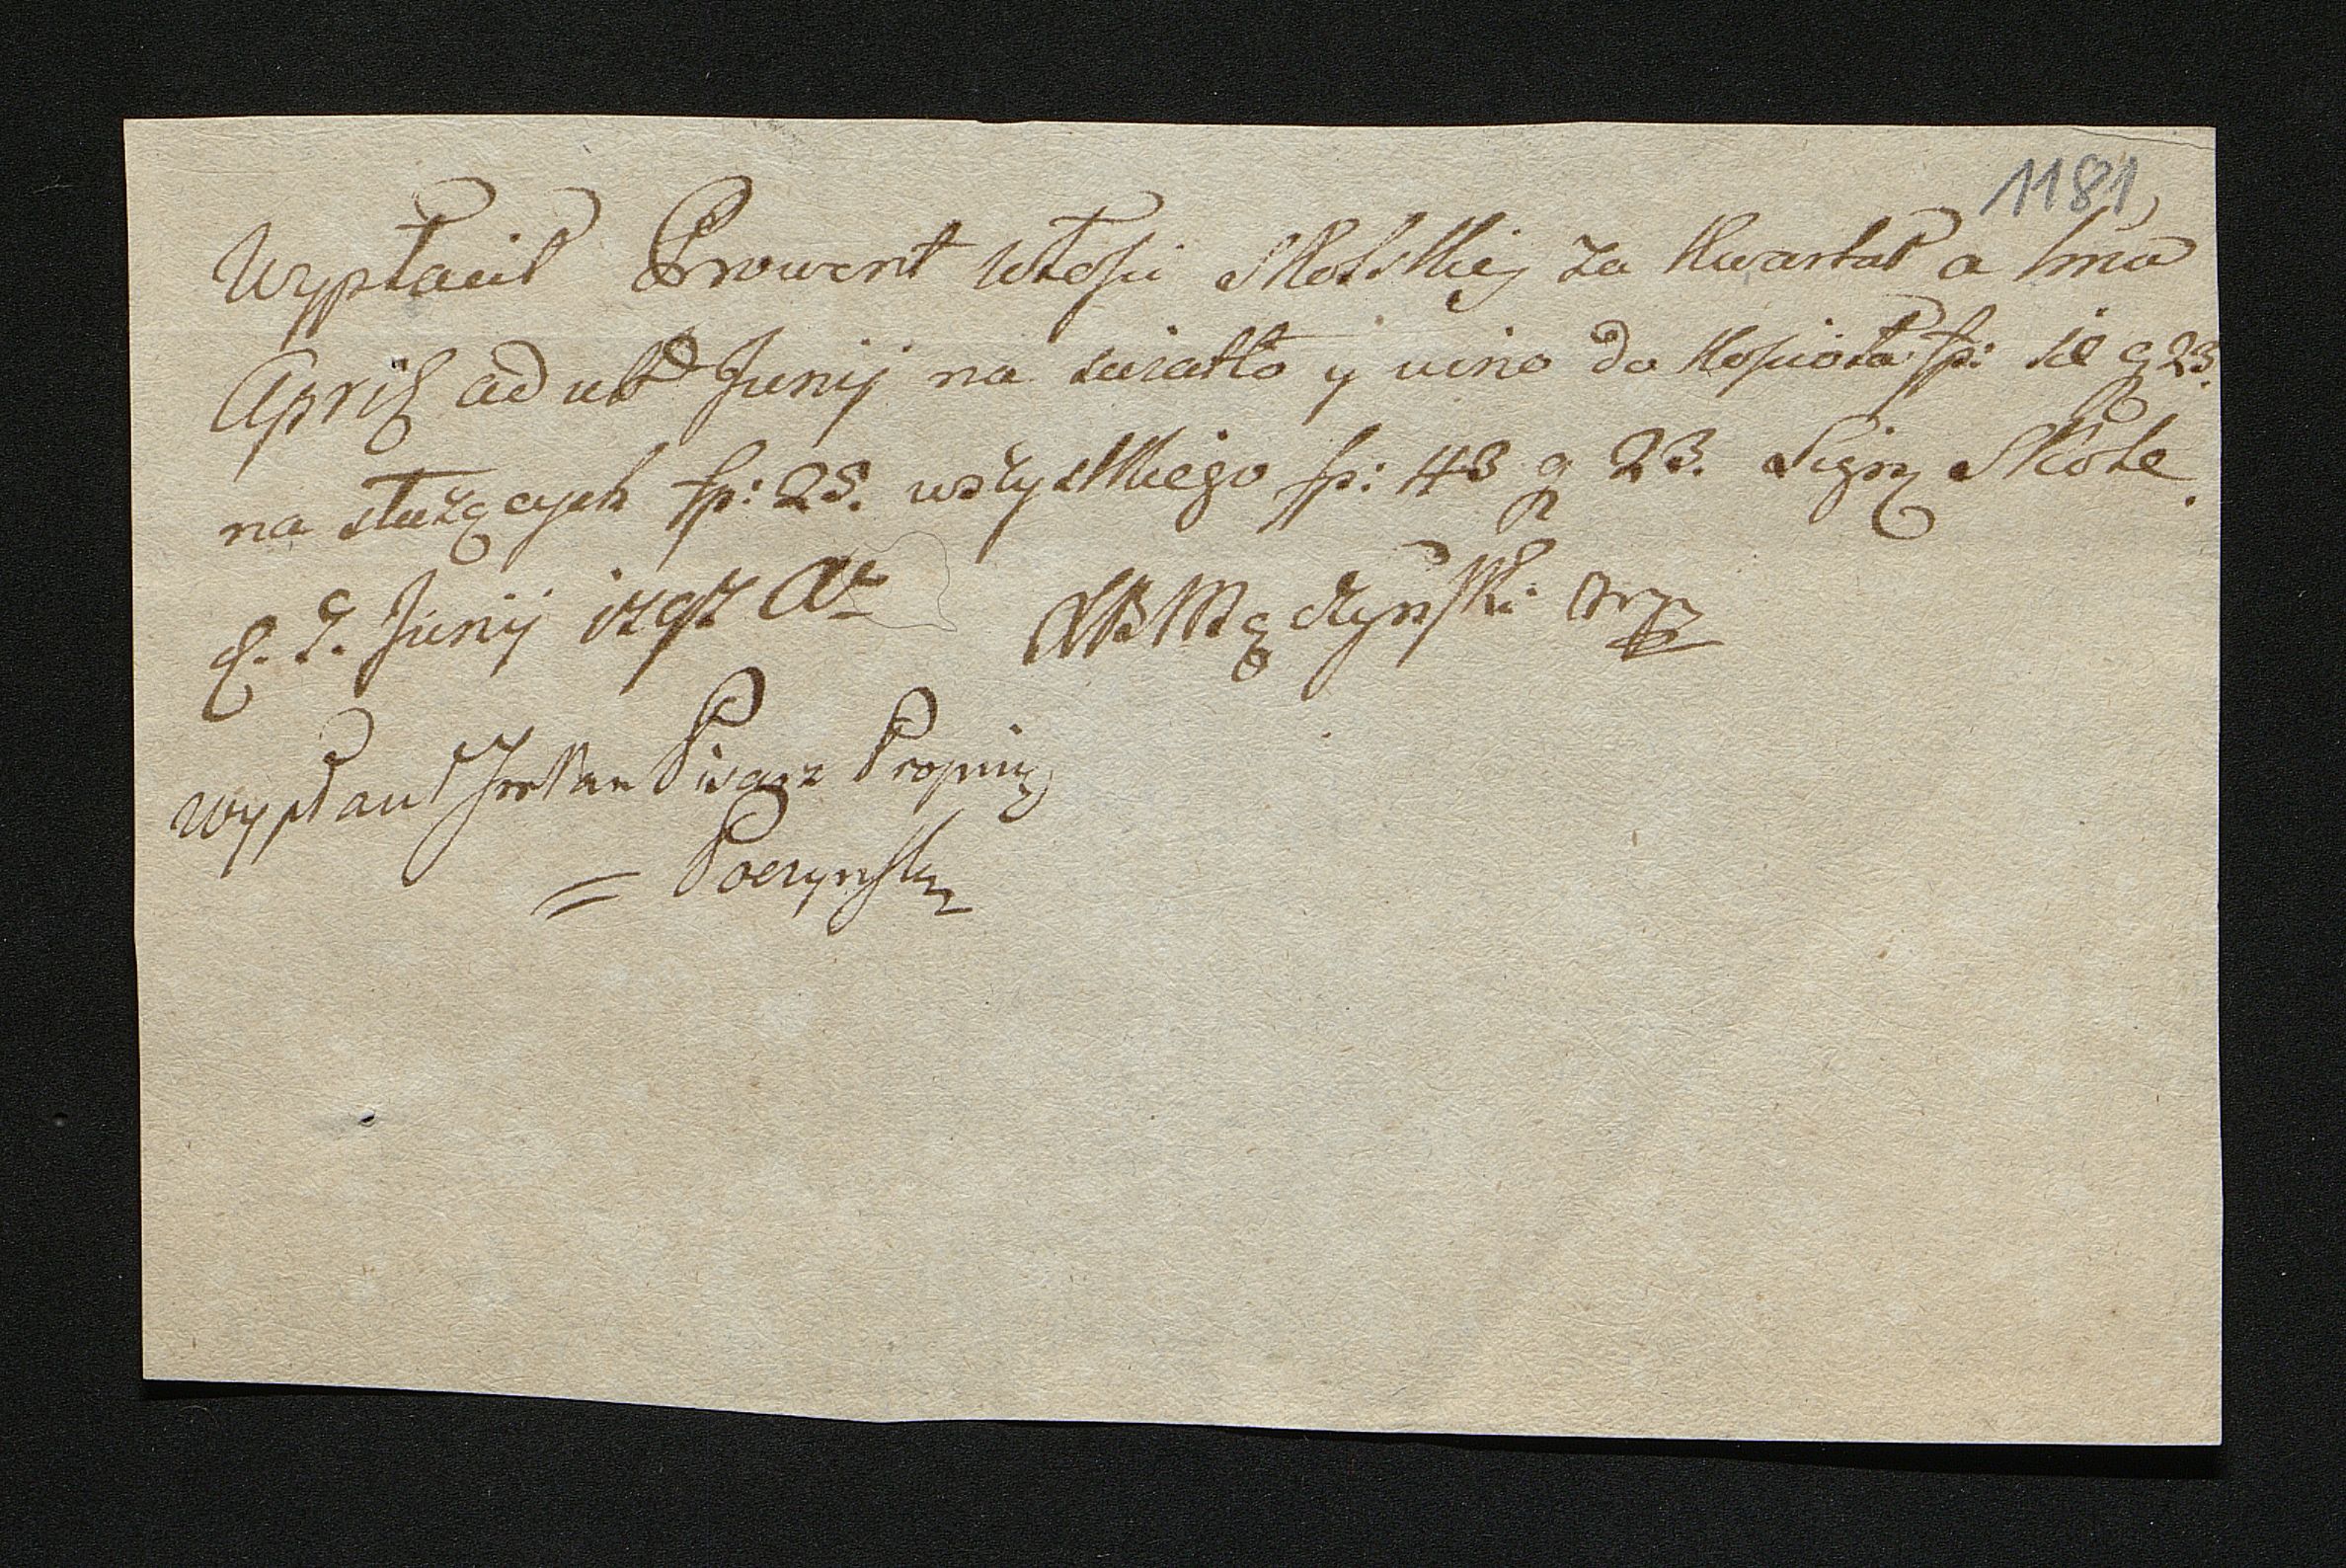 1181
Wypłacił Prowent Włości Skolskiej za Kwartał a 1ma
Aprilis ad ult Junij na swiatło y wino do Kościoła fp: 18 g 23.
na służących fp: 25. wszystkiego fp: 43 g 23. Sign Skole.
d. 9. Junij 1797 Ao
Mączyński mp
Wypłacił Pisarz Propin
= Poczynsky